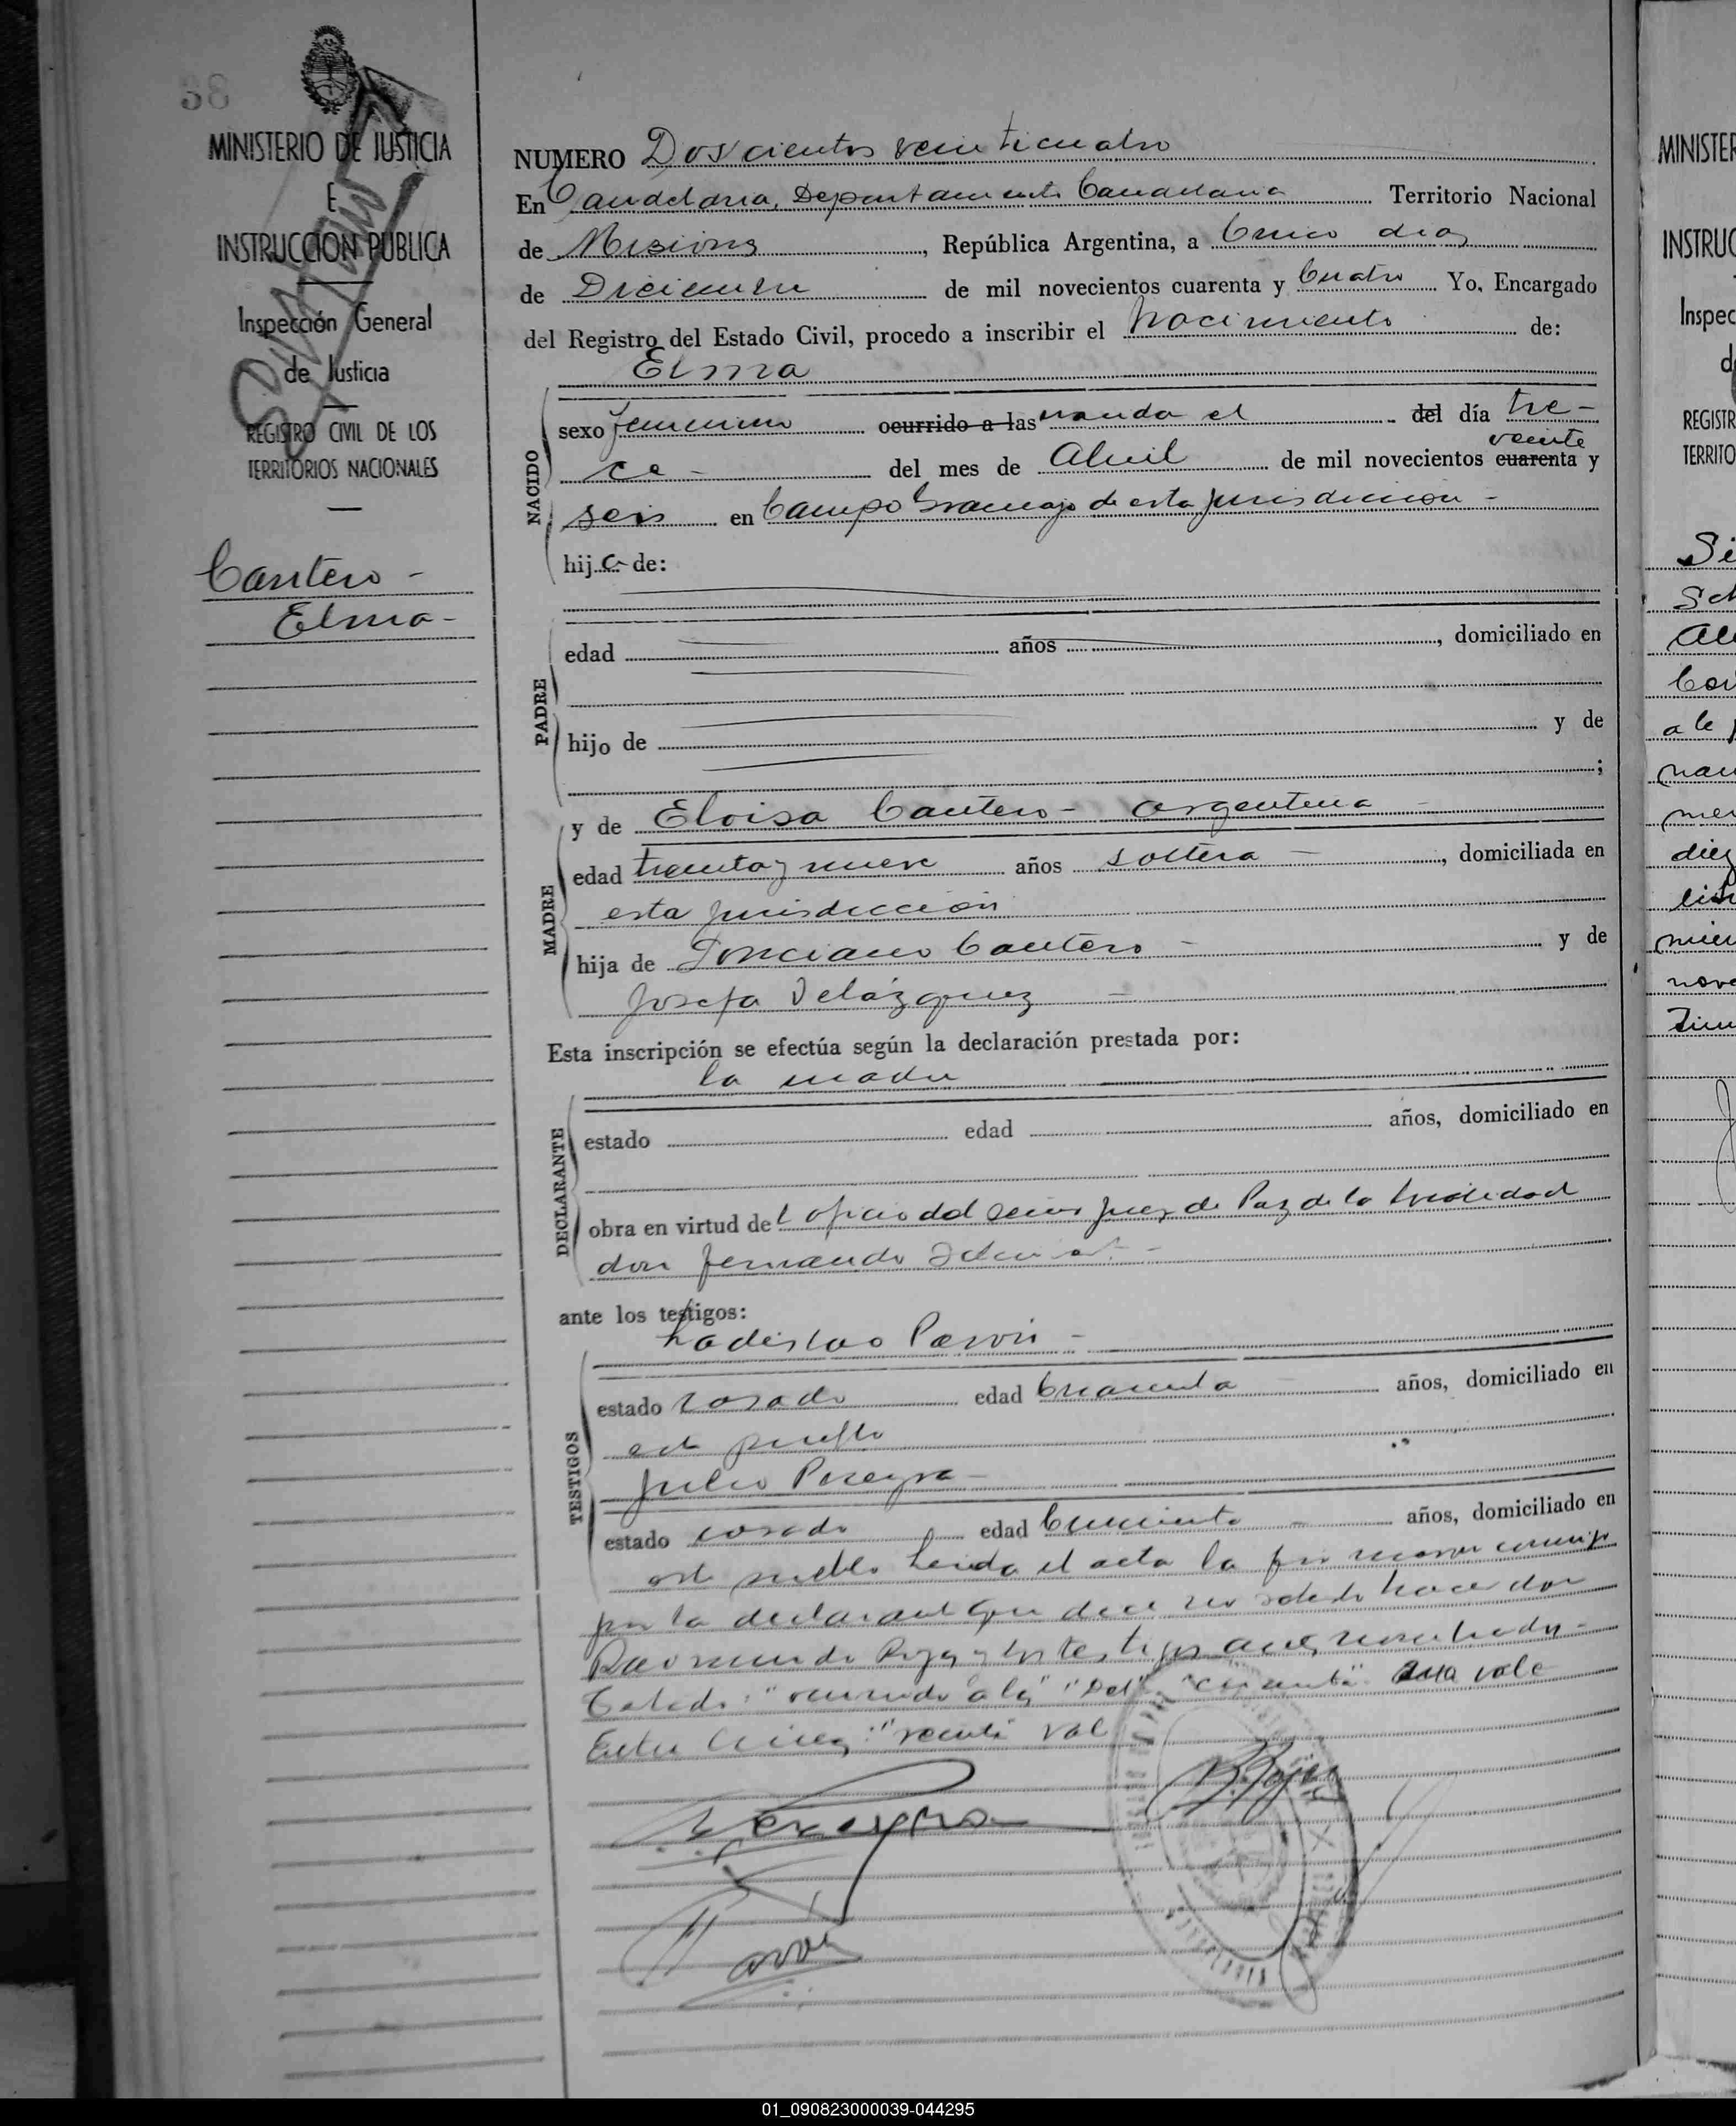 38
MINISTERIO DE JUSTICIA
E
INSTRUCCION PUBLICA
Inspección General
de Justicia
REGISTRO CIVIL DE LOS
TERRITORIOS NACIONALES
Cantero -
Elma -
NUMERO Doscientos veinticuatro
En Candelaria, Departamento Candelaria Territorio Nacional
de Misiones, República Argentina, a Cinco dias
de Diciembre de mil novecientos cuarenta y Cuatro Yo, Encargado
del Registro del Estado Civil, procedo a inscribir el Nacimiento de:
Elma
NACIDO
sexo femenino ocurrido a las nacida el del día tre-
veinte
ce - del mes de Abril de mil novecientos cuarenta y
seis en Campo Gramajo de esta jurisdiccion -
hija de:
PADRE
edad años , domiciliado en
hijo de y de
;
MADRE
y de Eloisa Cantero - argentina
edad treinta y nueve años soltera - , domiciliada en
esta jurisdiccion
hija de Ponciano Cantero - y de
Josefa Velázquez -
Esta inscripción se efectúa según la declaración prestada por:
la madre
DECLARANTE
estado edad años, domiciliado en
obra en virtud del oficio del señor Juez de Paz de la localidad
don Fernando
ante los testigos:
Ladislao Parvi -
TESTIGOS
estado casado edad Cuarenta años, domiciliado en
este pueblo
Julio Pereyra -
estado casado edad años, domiciliado en
este pueblo Leida el acta la firman conmigo
por la declarante que dice no saber lo hace don
Raimundo Rojas y los testigos antes nombrados -
Testado: "ocurrido a las" "del" "cuarenta" no vale
Entre lineas: "veinte" vale
Pereyra
B. Rojas
Parvi
MINISTER
INSTRUC
Inspec
d
REGISTR
TERRITO
01_090823000039-044295